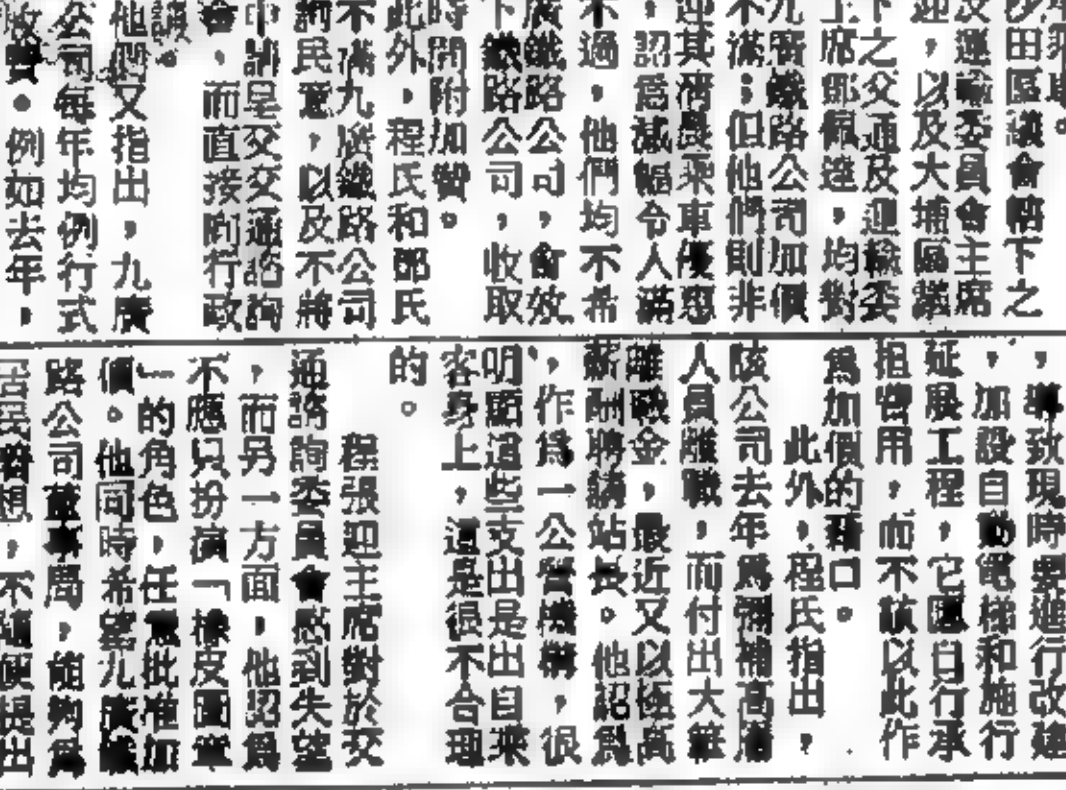 沙田區議會轄下之
及運輸委員會主席
迎，以及大埔區議
下之交通及運輸委
主席鄧佩達，均對
九廣鐵路公司加價
不滿；但他們則非
，認為減幅令人滿
不過，他們均不希
廣鐵路公司，會效
下鐵路公司，收取
時間附加費。
此外，程氏和鄧氏
不滿九廣鐵路公司
詢民意，以及不將
申請呈交交通諮詢
會，而直接向行政
他們又指出，九廣
公司每年均例行式
收費。例如去年，
，導致現時要進行改建
，加設自動電梯和施行
延展工程，它應自行承
担費用，而不該以此作
為加價的藉口。
此外，程氏指出，
該公司去年為彌補高層
人員離職，而付出大筆
離職金，最近又以極高
薪酬聘請站長。他認為
，作為一公營機構，很
明顯這些支出是出自乘
客身上，這是很不合理
的。
程張迎主席對於交
通諮詢委員會感到失望
，而另一方面，他認為
不應只扮演「橡皮圖章
」的角色，任意批准加
價。他同時希望九廣鐵
路公司董事局，能夠為
居民着想，不隨便提出